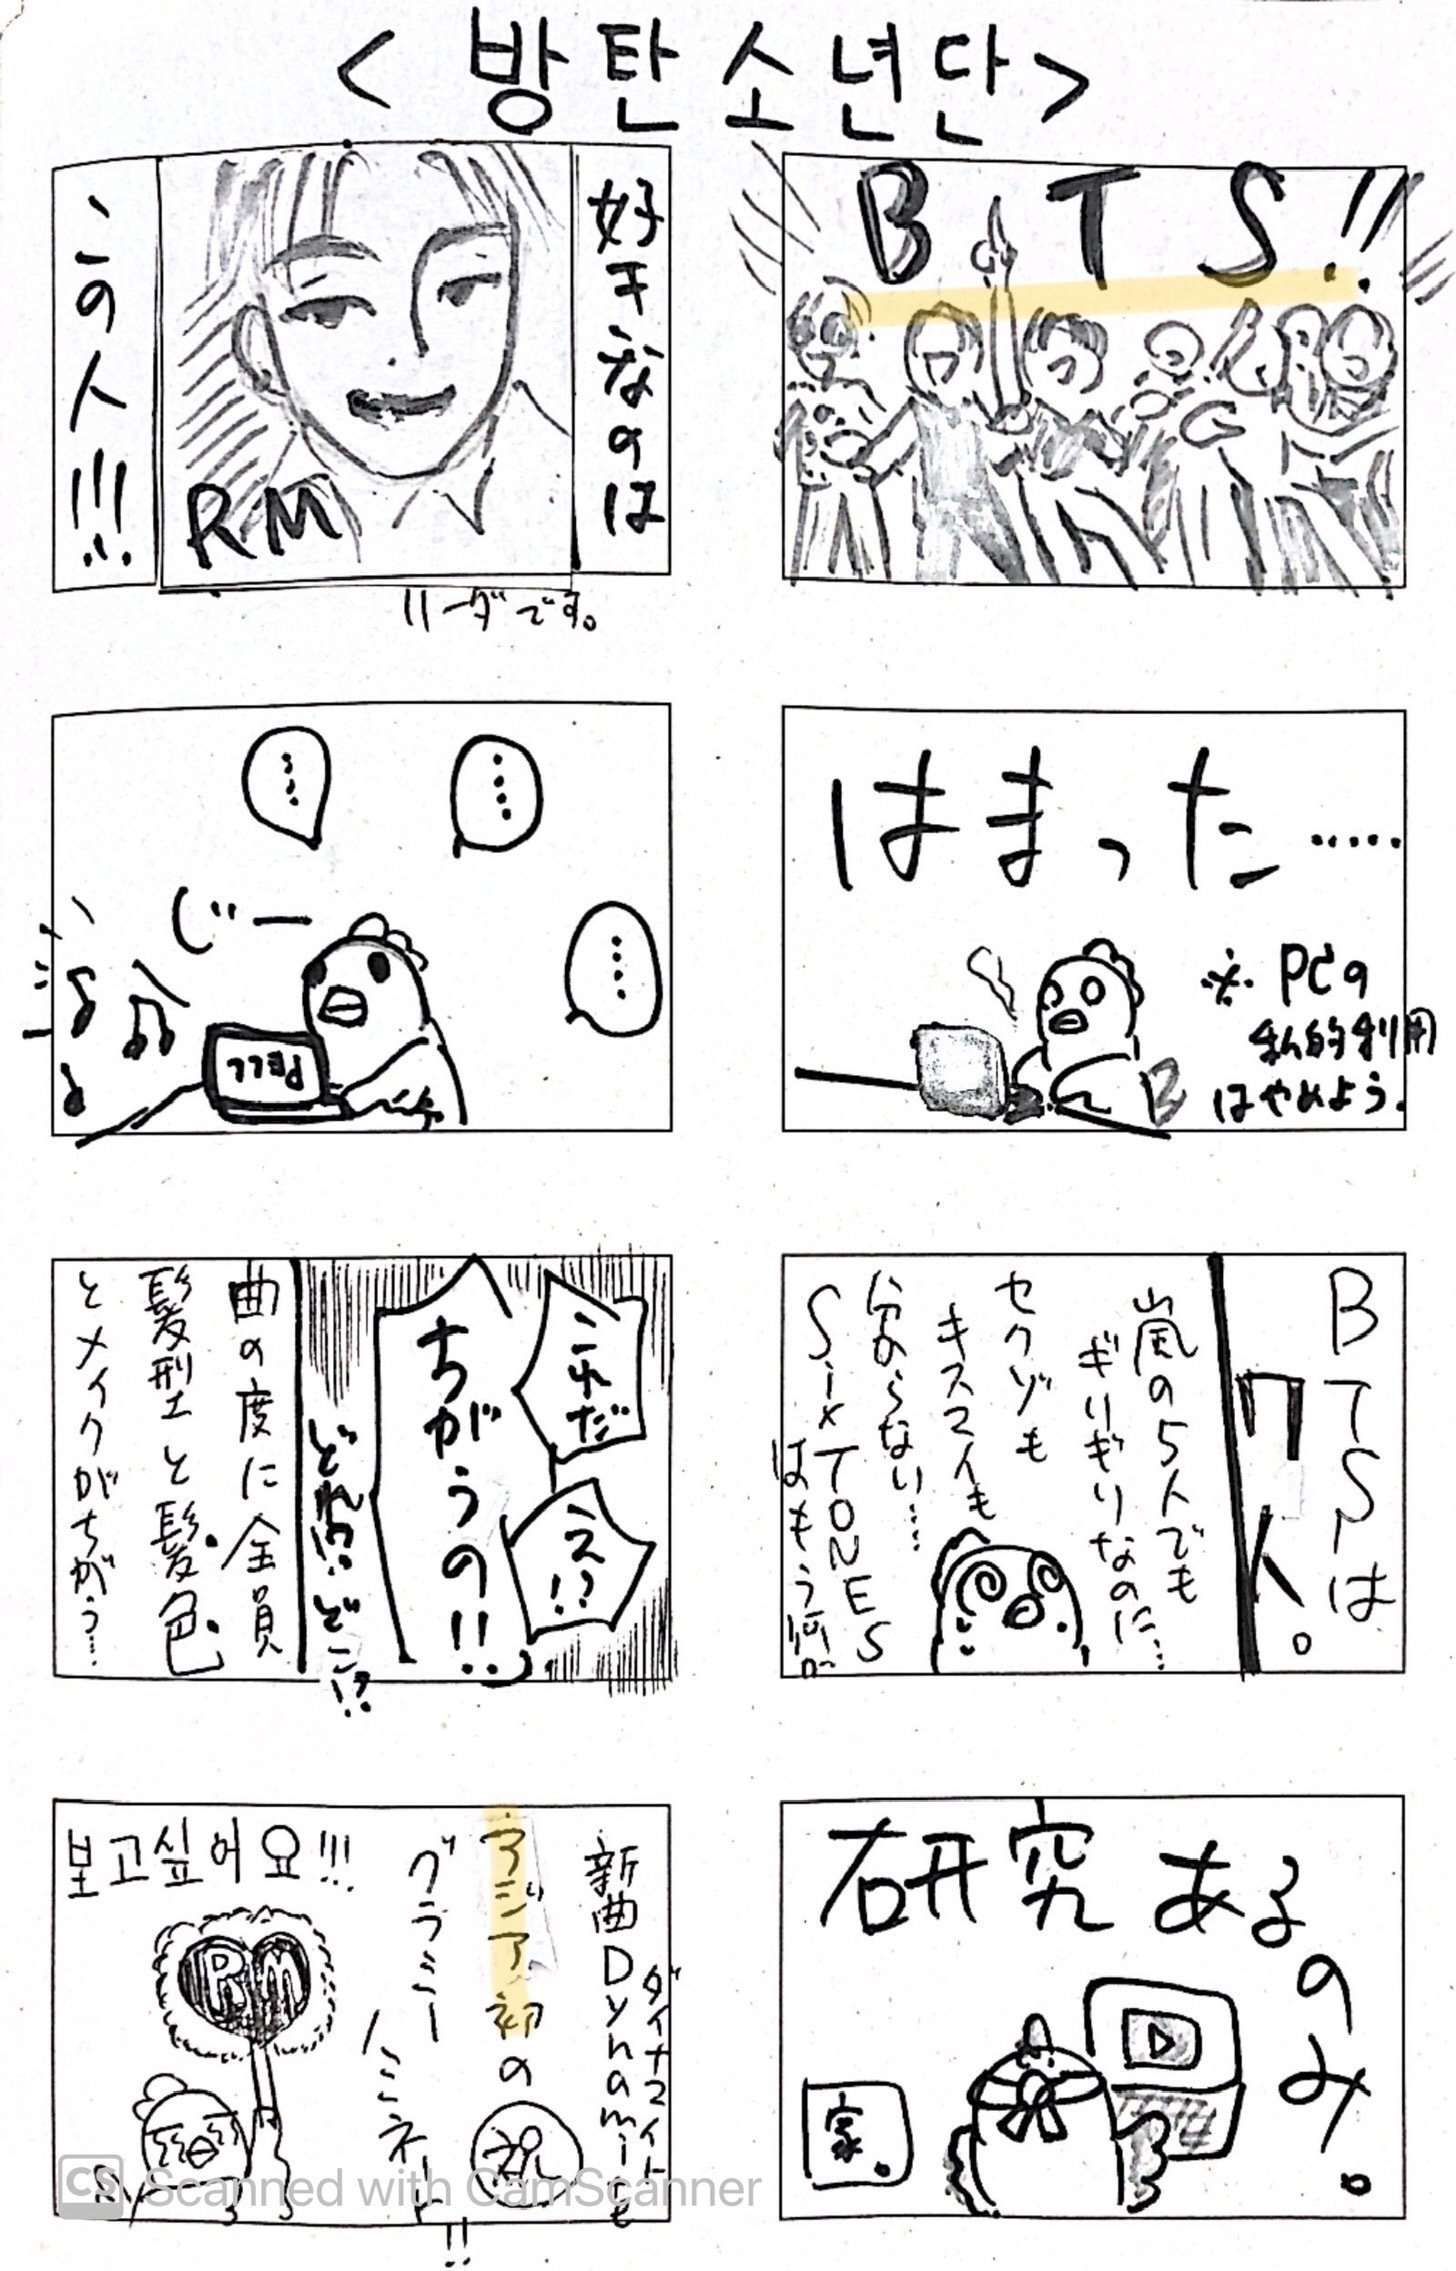 <방탄소년단>
BTS!!
はまった……
※PCの
私的利用
はやめよう。
BTSは
7人。
嵐の5人でも
ぎりぎりなのに…
セクゾも
キスマイも
分からない……
SixTONES
はもう謎。
研究あるのみ。
家。
好きなのは
RM
この人!!!
リーダです。
……
……
……
じー
DELL
これだ
え!?
ちがうの!!
どれ!? どこ!?
曲の度に全員
髪型と髪色
とメイクがちがう…
新曲Dynamiteも
ダイナマイト
アジア初の
祝
グラミー
ノミネート!!
보고싶어요!!!
RM
CS Scanned with CamScanner